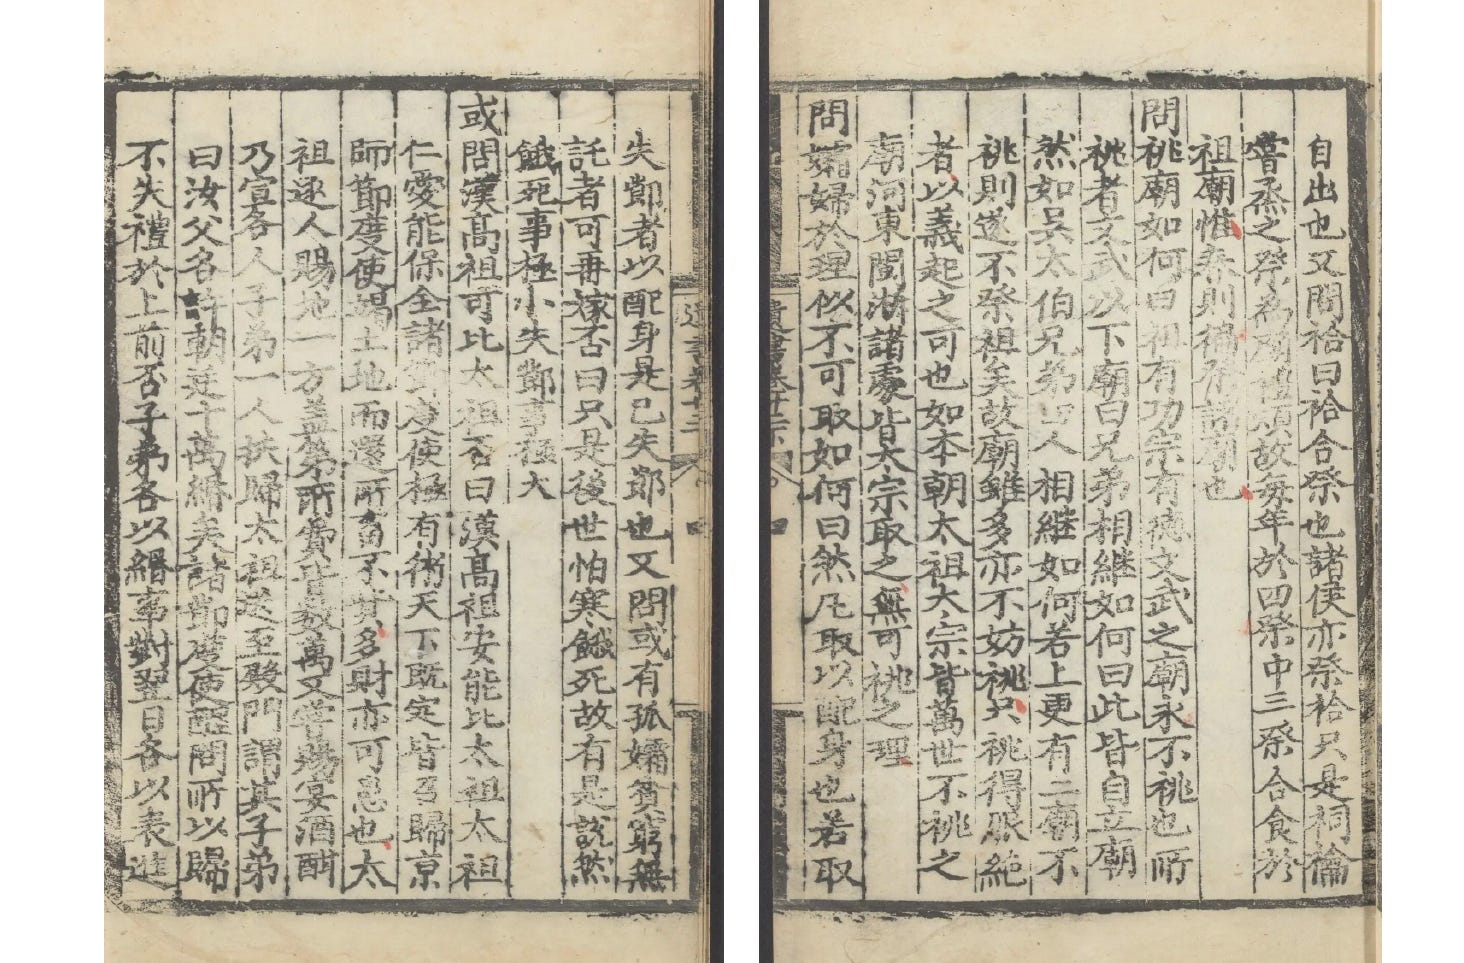 自出也又問祫曰祫合祭也諸侯亦祭祫只是祠禴
嘗烝之祭為廟禮煩故每年於四祭中三祭合食於
祖廟惟春則徧祭諸廟也
問祧廟如何曰祖有功宗有德文武之廟永不祧也所
祧者文武以下廟曰兄弟相繼如何曰此皆自立廟
然如吳太伯兄弟四人相繼如何若上更有二廟不
祧則遂不祭祖矣故廟雖多亦不妨祧只祧得服絕
者以義起之可也如本朝太祖大宗皆萬世不祧之
廟河東閩浙諸處皆大宗取之無可祧之理
問孀婦於理似不可取如何曰然凡取以配身也若取
遺書卷廿二下 四
失節者以配身是己失節也又問或有孤孀貧窮無
託者可再嫁否曰只是後世怕寒餓死故有是說然
餓死事極小失節事極大
或問漢高祖可比太祖否曰漢高祖安能比太祖太祖
仁愛能保全諸節度使極有術天下既定皆召歸京
師節度使竭土地而還所畜不貲多財亦可患也太
祖逐人賜地一方蓋第所費皆數萬又嘗賜宴酒酣
乃宣各人子弟一人扶歸太祖送至殿門謂其子弟
曰汝父各許朝廷十萬緡矣諸節度使醒問所以歸
不失禮於上前否子弟各以緡事對翌日各以表進